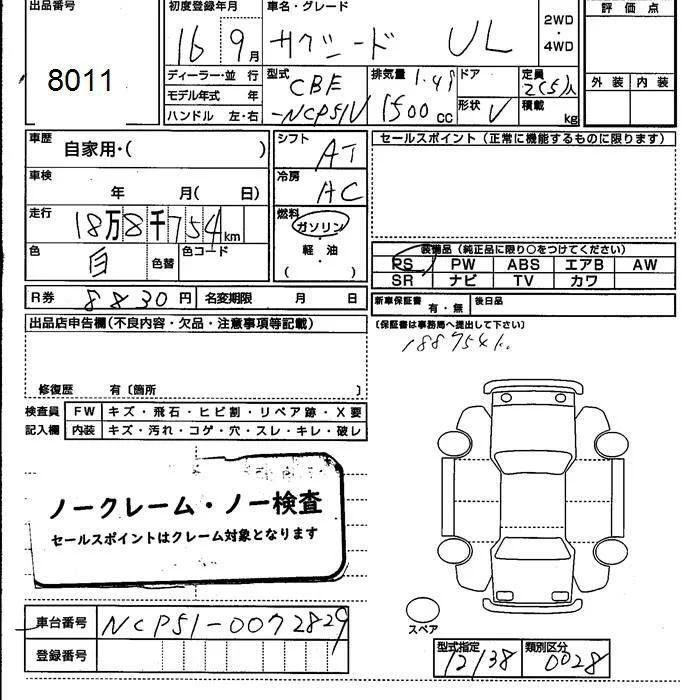 出品番号
8011
初度登録年月
16 9月
車名・グレード
サクシード UL
2WD
・
4WD
評価点
外装 内装
ディーラー・並 行
モデル年式 年
ハンドル 左・右
型式
CBE
-NCP51V
排気量 1.49
1500 cc
ドア
形状 V
定員 2(5)人
積載 kg
車歴
自家用・( )
車検
年 月( 日)
走行
18万8千754km
色 白 色替 色コード
R券 8830円 名変期限 月 日
シフト AT
冷房 AC
燃料
ガソリン
・
軽・油
( )
セールスポイント (正常に機能するものに限ります)
装備品 (純正品に限り○をつけてください)
PS PW ABS エアB AW
SR ナビ TV カワ
新車保証書 有・無 後日品
〔保証書は事務局へ提出して下さい〕
188754k
出品店申告欄(不良内容・欠品・注意事項等記載)
修復歴 有〔箇所 〕
検査員 FW キズ・飛石・ヒビ割・リペア跡・X要
記入欄 内装 キズ・汚れ・コゲ・穴・スレ・キレ・破レ
ノークレーム・ノー検査
セールスポイントはクレーム対象となります
車台番号 NCP51-0072829
登録番号
スペア
型式指定 類別区分
12138 0028